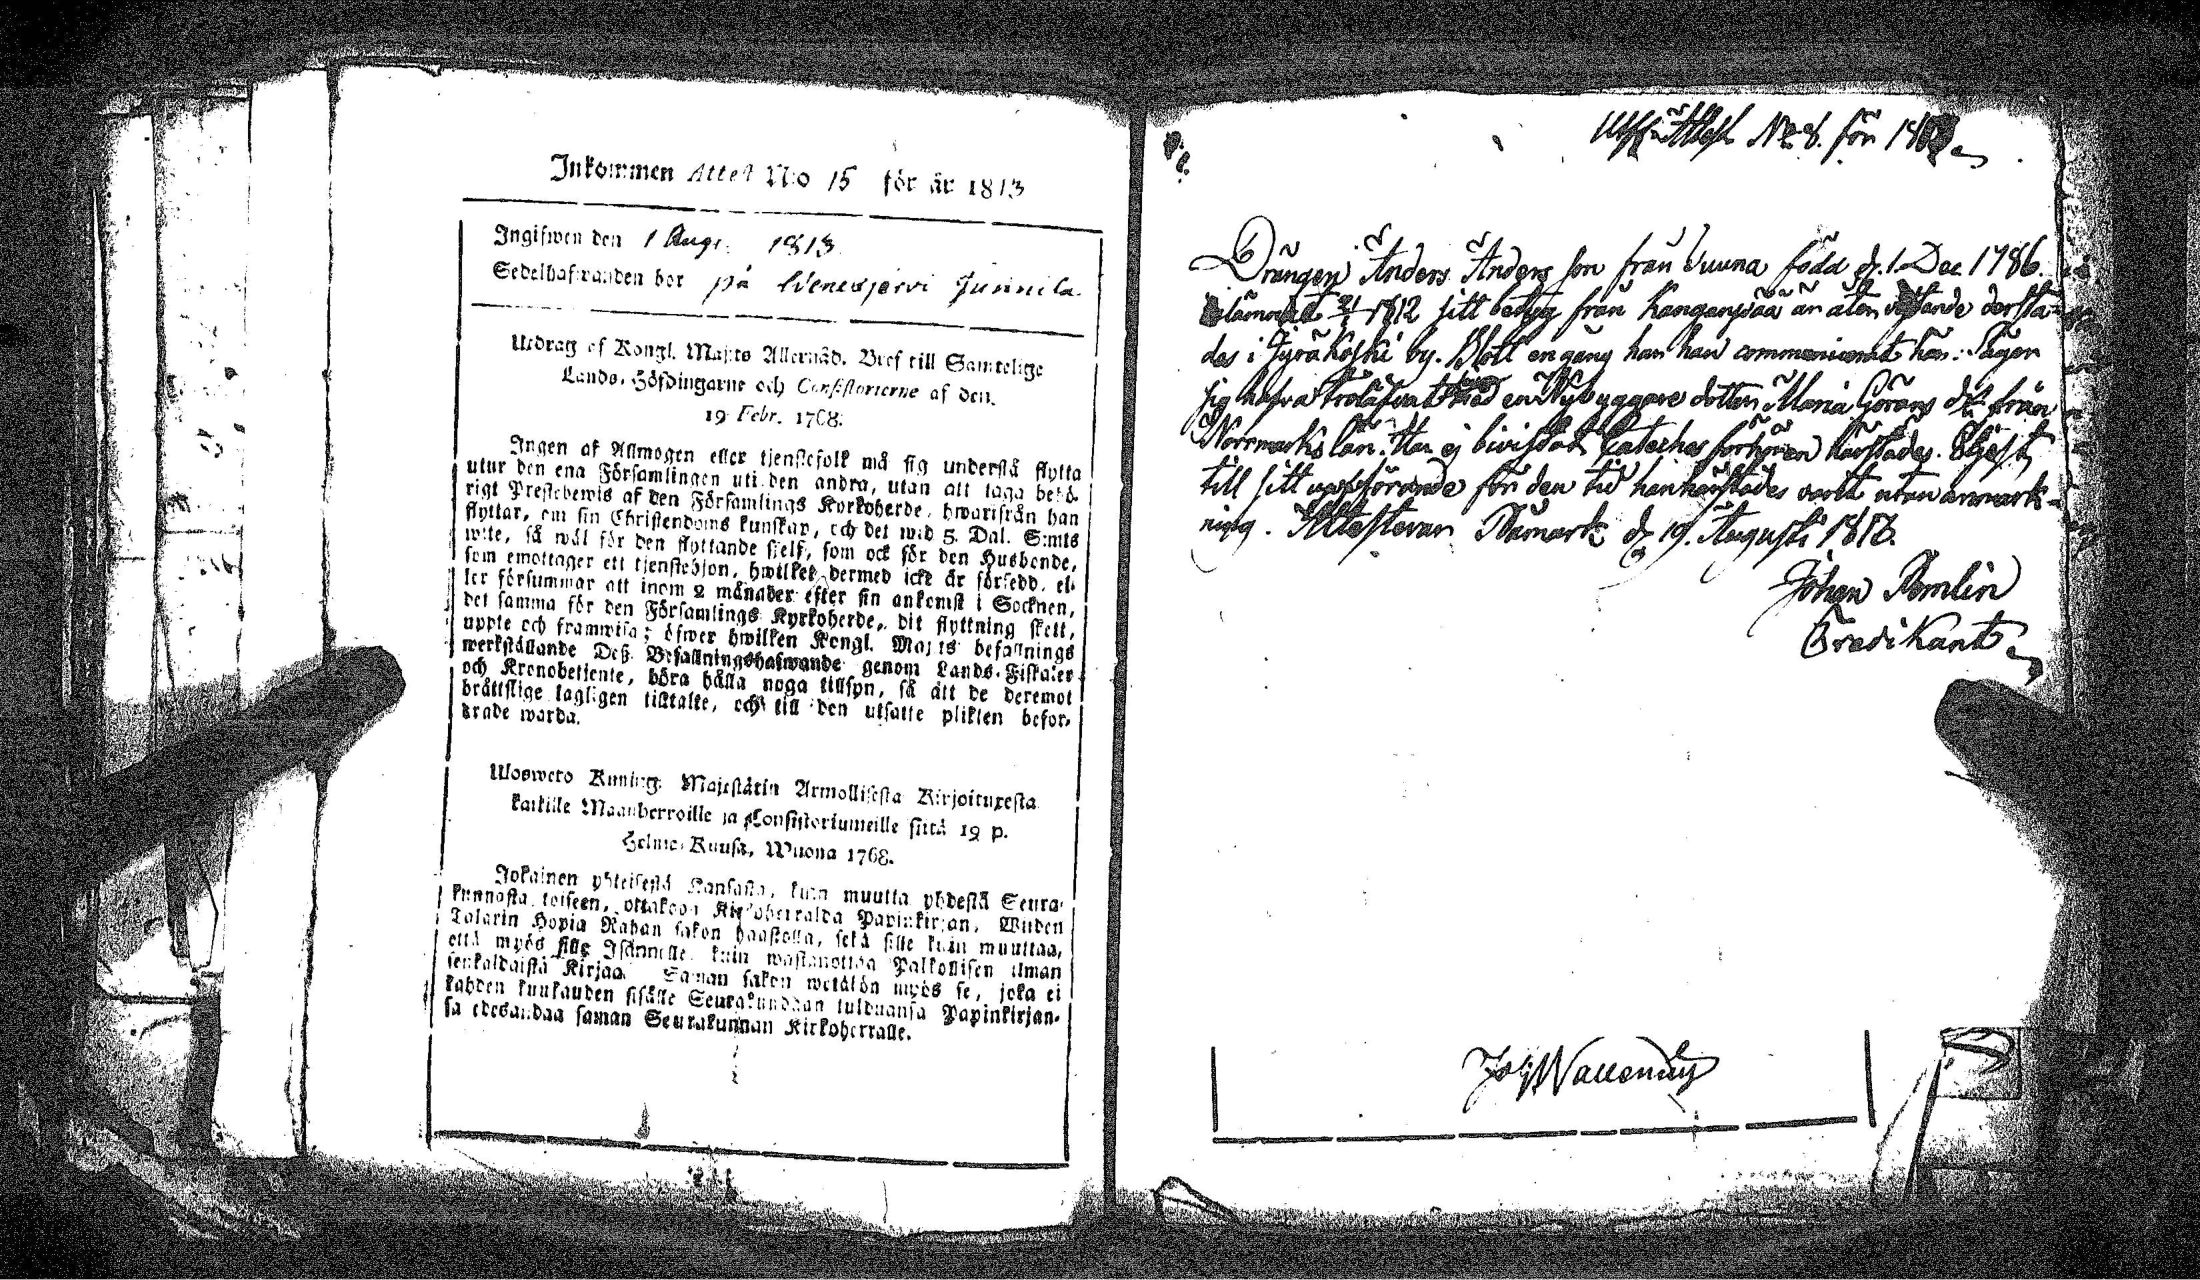 Inkommen Attest N:o 15 för år 1813
Ingifwen den 1 Aug. 1813
Sedelhafwanden bor på Wenesjerfvi Junnila.
Utdrag af Kongl. Maj:ts Allernåd. Bref till Samtelige
Lands-Höfdingarne och Consistorierne af den.
19 Febr. 1768.
Ingen af Allmogen eller tjenstefolk må sig understå flytta
utur den ena Församlingen uti den andra, utan att taga behö-
rigt Prestebewis af den Församlings Kyrkoherde, hwarifrån han
flyttar, om sin Christendoms kunskap, och det wid 5. Dal. S:mts
wite, så wäl för den flyttande sjelf, som ock för den Husbonde,
som emottager ett tjenstehjon, hwilket dermed icke är försedd, el-
ler försummar att inom 2 månader efter sin ankomst i Socknen,
det samma för den Församlings Kyrkoherde, dit flyttning skett,
uppte och framwisa; öfwer hwilken Kongl. Maj:ts befallnings
werkställande Deß Befallningshafwande genom Lands-Fiskaler
och Kronobetjente, böra hålla noga tillsyn, så att de deremot
bråttslige lagligen tilltalte, och till den utsatte plikten befor-
drade warda.
Ulosweto Kuning. Majestätin Armollisesta Kirjoituxesta
kaikille Maanherroille ja Consistoriumeille siitä 19 p.
Helme-Kuusa, Wuona 1768.
Jokainen yhteisestä Kansasta, kuin muutta yhdestä Seura-
kunnasta toiseen, ottakoon Kirkoherralda Papinkirjan, Wiiden
Talarin Hopia Rahan sakon haastolla, sekä sille kuin muuttaa,
että myös sille Isännälle, kuin wastanottaa Palkollisen ilman
senkaldaistä Kirjaa. Saman sakon wetälön myös se, joka ei
kahden kuukauden sisälle Seurakunddan tulduansa Papinkirjan-
sa edesandaa saman Seurakunnan Kirkoherralle.
N:o 8. för
Drängen Anders Anders son från född d. 1. Dec 1786.
1812 sitt betyg från Kangansää är åter derstä-
des i Jyräkoski by. Blott en gång har han communicerat här. Säger
sig hafva en Nybyggare dotter Maria Görans dr från
Norrmarks län. Har ej bivistat Cateches förhören härstädes.
till sitt uppförande för den tid han härstädes varit utan anmärk-
ning. Attesterar Påmark d. 19. Augusti
Johan Pomlin
Predikant